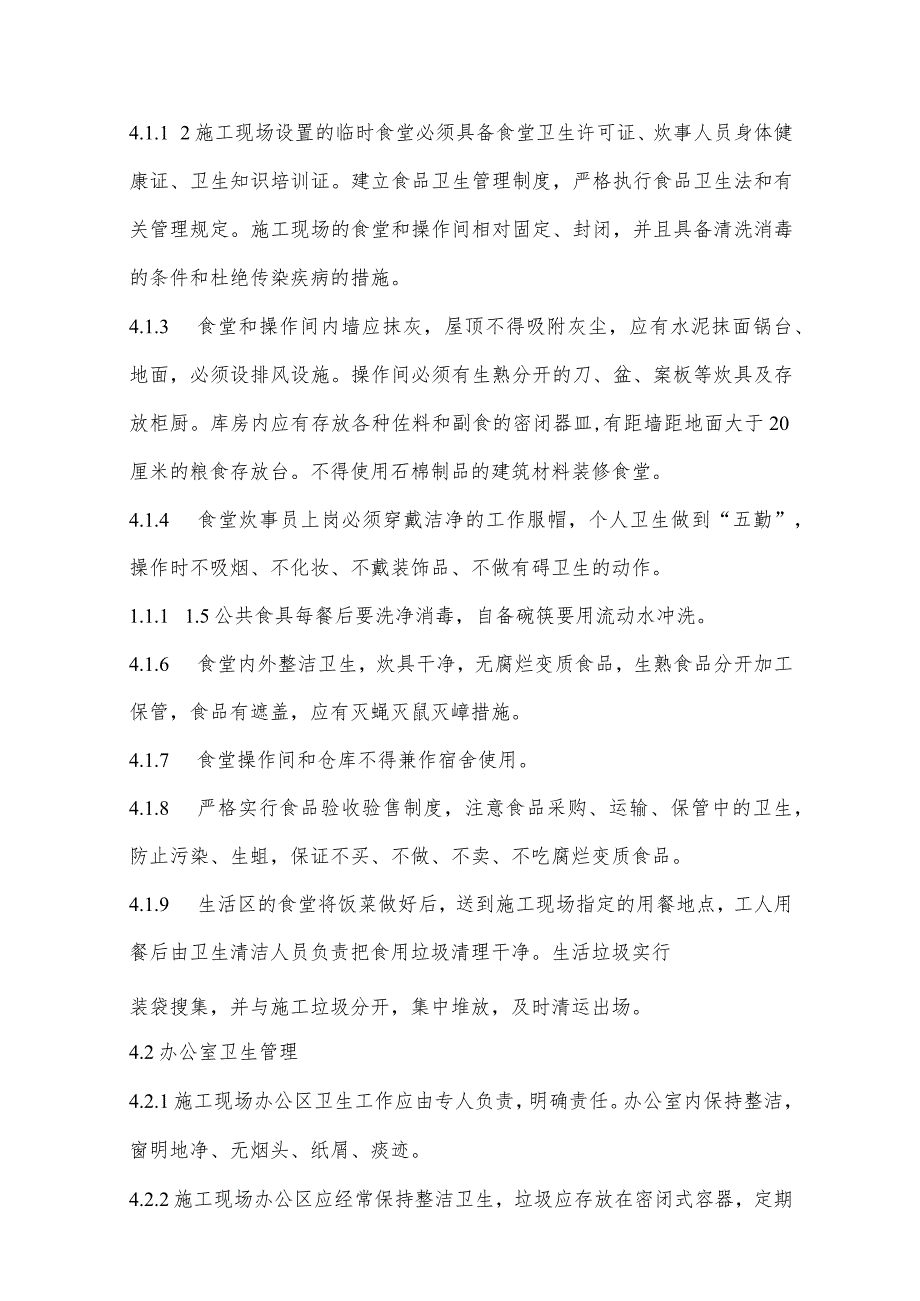 4.1.1 2施工现场设置的临时食堂必须具备食堂卫生许可证、炊事人员身体健
康证、卫生知识培训证。建立食品卫生管理制度，严格执行食品卫生法和有
关管理规定。施工现场的食堂和操作间相对固定、封闭，并且具备清洗消毒
的条件和杜绝传染疾病的措施。
4.1.3 食堂和操作间内墙应抹灰，屋顶不得吸附灰尘，应有水泥抹面锅台、
地面，必须设排风设施。操作间必须有生熟分开的刀、盆、案板等炊具及存
放柜厨。库房内应有存放各种佐料和副食的密闭器皿,有距墙距地面大于20
厘米的粮食存放台。不得使用石棉制品的建筑材料装修食堂。
4.1.4 食堂炊事员上岗必须穿戴洁净的工作服帽，个人卫生做到“五勤”，
操作时不吸烟、不化妆、不戴装饰品、不做有碍卫生的动作。
1.1.1 1.5公共食具每餐后要洗净消毒，自备碗筷要用流动水冲洗。
4.1.6 食堂内外整洁卫生，炊具干净，无腐烂变质食品，生熟食品分开加工
保管，食品有遮盖，应有灭蝇灭鼠灭嶂措施。
4.1.7 食堂操作间和仓库不得兼作宿舍使用。
4.1.8 严格实行食品验收验售制度，注意食品采购、运输、保管中的卫生，
防止污染、生蛆，保证不买、不做、不卖、不吃腐烂变质食品。
4.1.9 生活区的食堂将饭菜做好后，送到施工现场指定的用餐地点，工人用
餐后由卫生清洁人员负责把食用垃圾清理干净。生活垃圾实行
装袋搜集，并与施工垃圾分开，集中堆放，及时清运出场。
4.2办公室卫生管理
4.2.1施工现场办公区卫生工作应由专人负责，明确责任。办公室内保持整洁，
窗明地净、无烟头、纸屑、痰迹。
4.2.2施工现场办公区应经常保持整洁卫生，垃圾应存放在密闭式容器，定期